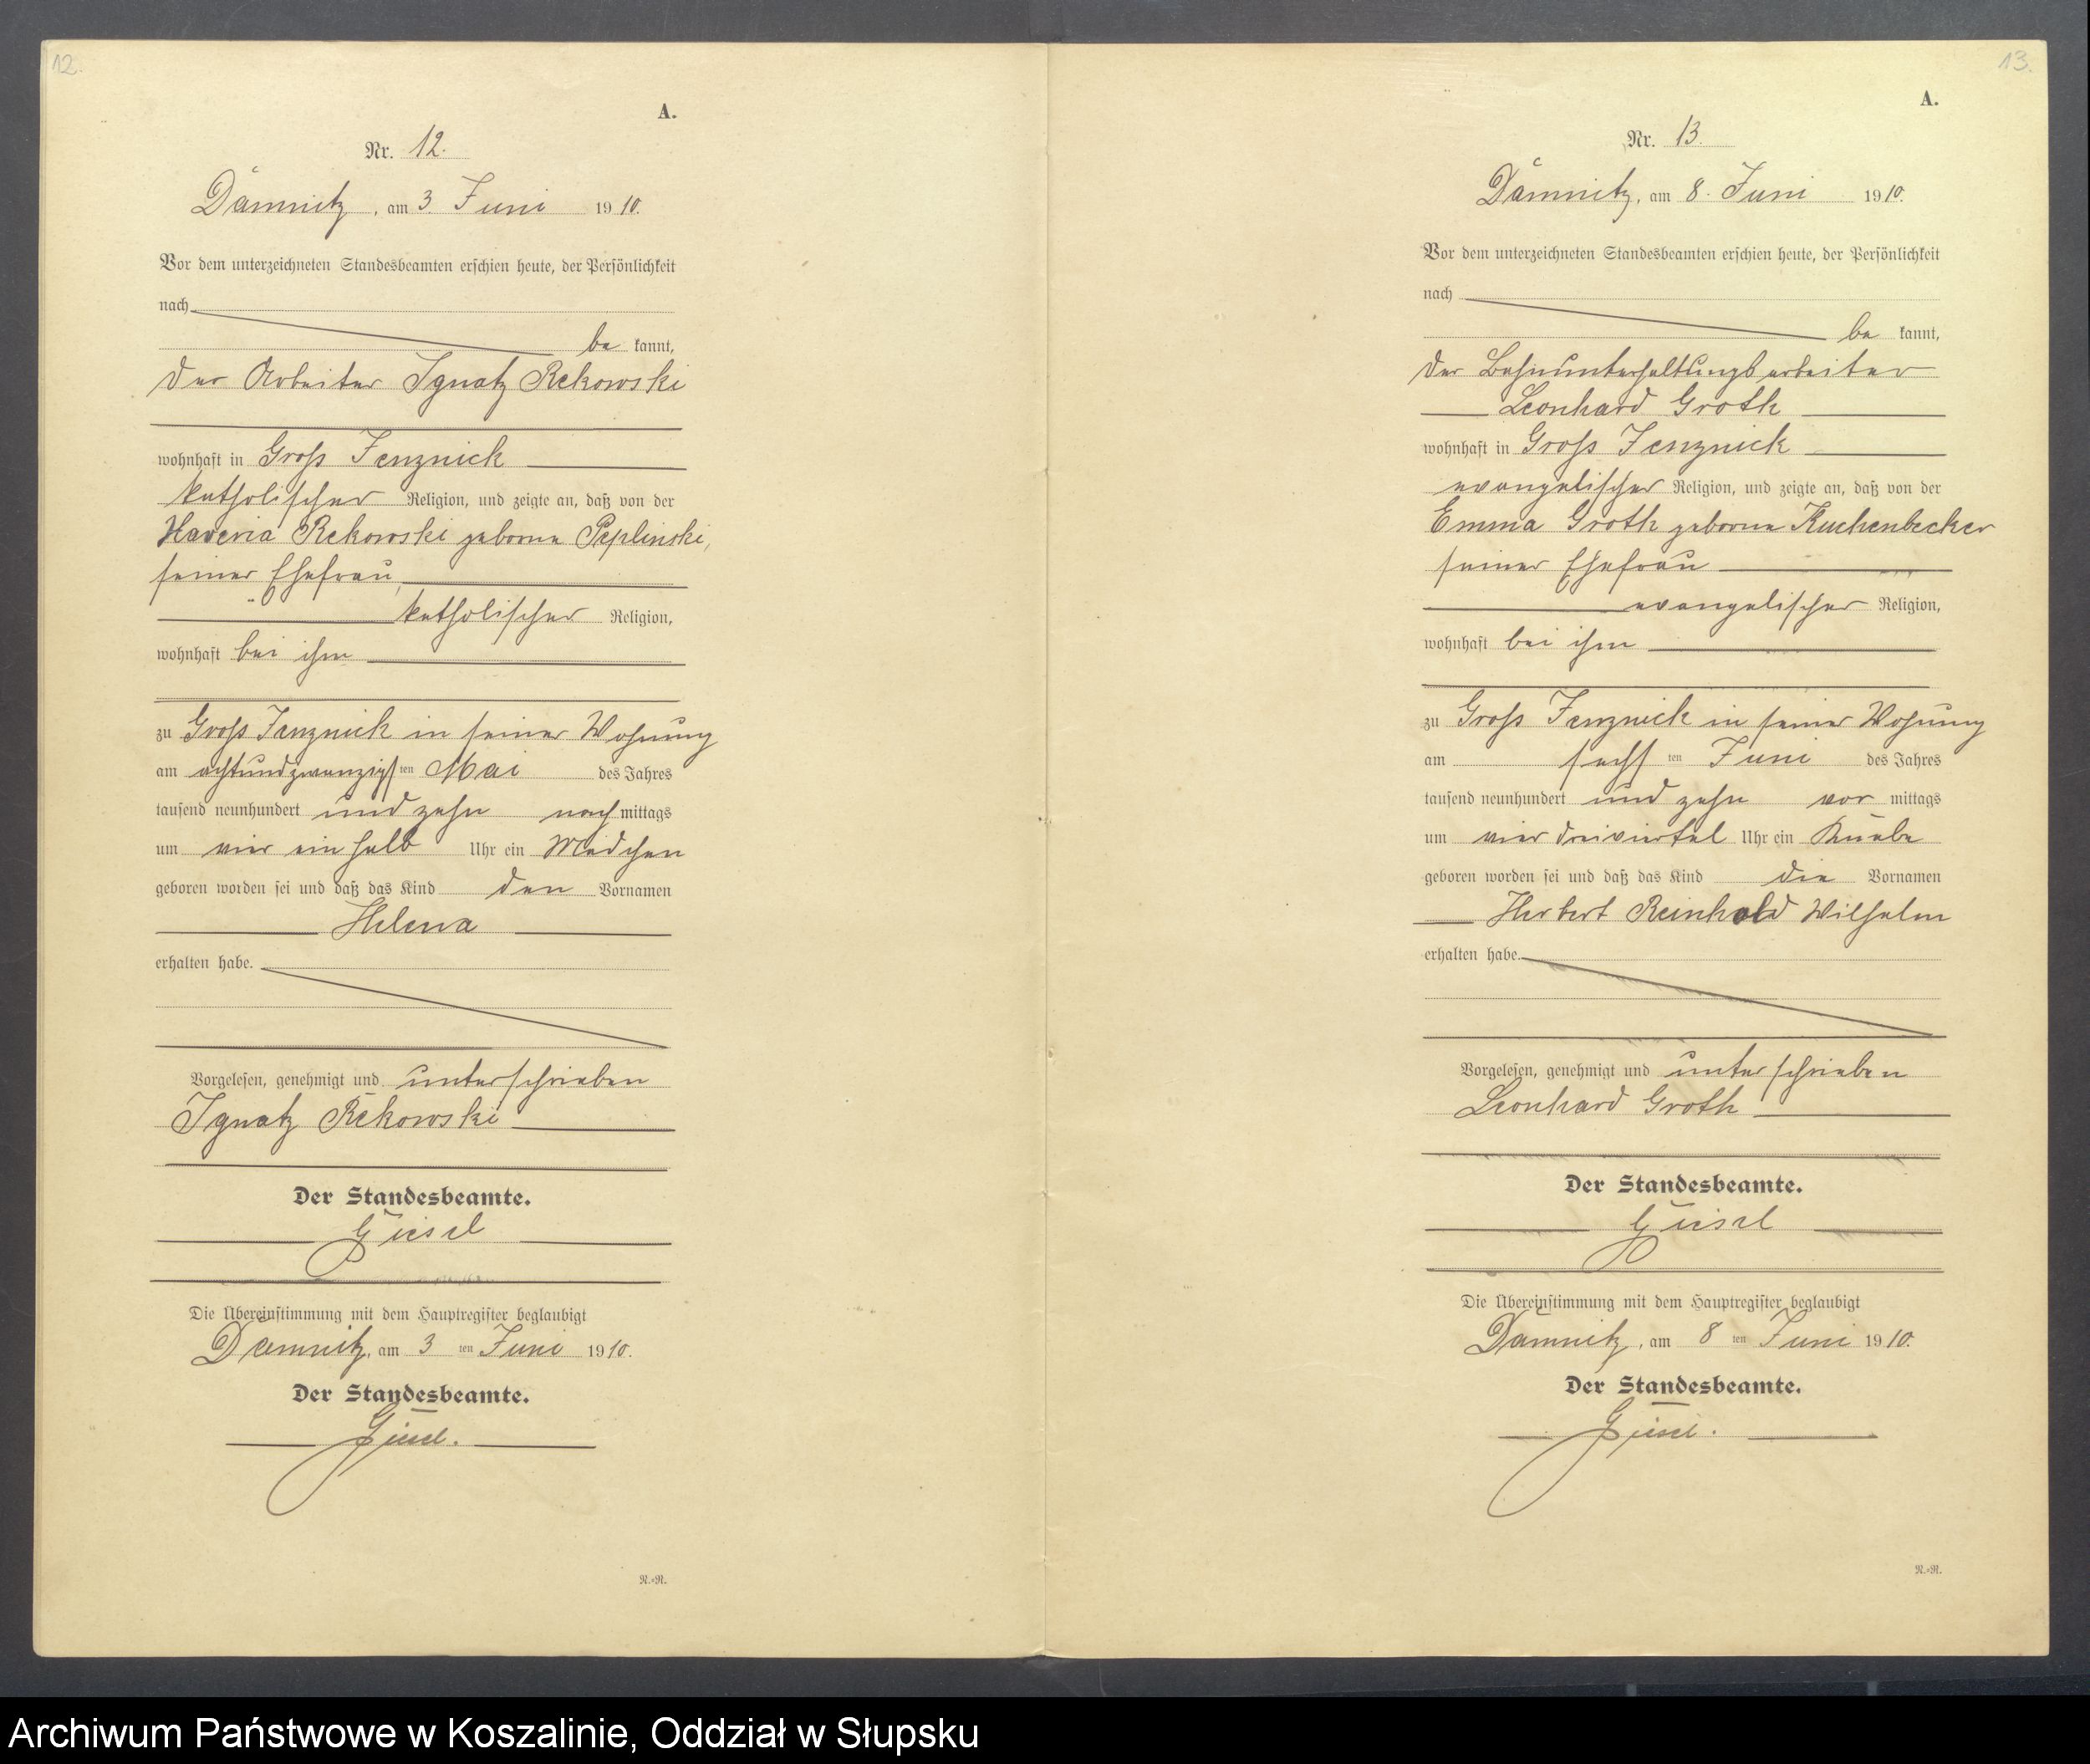 12.
A.
Nr. 12.
Damnitz, am 3. Juni 1910.
Vor dem unterzeichneten Standesbeamten erschien heute, der Persönlichkeit
nach
be kannt,
der Arbeiter Ignatz Rekowski
wohnhaft in Groß Jenznick
katholischer Religion, und zeigte an, daß von der
Haveria Rekowski geborne Peplinski,
seiner Ehefrau,
katholischer Religion,
wohnhaft bei ihm
zu Groß Jenznick in seiner Wohnung
am achtundzwanzigsten Mai des Jahres
tausend neunhundert und zehn nach mittags
um vier ein halb Uhr ein Mädchen
geboren worden sei und daß das Kind den Vornamen
Helena
erhalten habe.
Vorgelesen, genehmigt und unterschrieben
Ignatz Rekowski
Der Standesbeamte.
Giesel
Die Übereinstimmung mit dem Hauptregister beglaubigt
Damnitz, am 3 ten Juni 1910.
Der Standesbeamte.
Giesel.
R.=R.
13.
A.
Nr. 13.
Damnitz, am 8. Juni 1910.
Vor dem unterzeichneten Standesbeamten erschien heute, der Persönlichkeit
nach
be kannt,
der Bahnunterhaltungsarbeiter
Leonhard Groth
wohnhaft in Groß Jenznick
evangelischer Religion, und zeigte an, daß von der
Emma Groth geborne Kuchenbecker
seiner Ehefrau
evangelischer Religion,
wohnhaft bei ihm
zu Groß Jenznick in seiner Wohnung
am sechsten Juni des Jahres
tausend neunhundert und zehn vor mittags
um vier dreiviertel Uhr ein Knabe
geboren worden sei und daß das Kind die Vornamen
Herbert Reinhold Wilhelm
erhalten habe.
Vorgelesen, genehmigt und unterschrieben
Leonhard Groth
Der Standesbeamte.
Giesel
Die Übereinstimmung mit dem Hauptregister beglaubigt
Damnitz, am 8 ten Juni 1910.
Der Standesbeamte.
Giesel.
R.=R.
Archiwum Państwowe w Koszalinie, Oddział w Słupsku